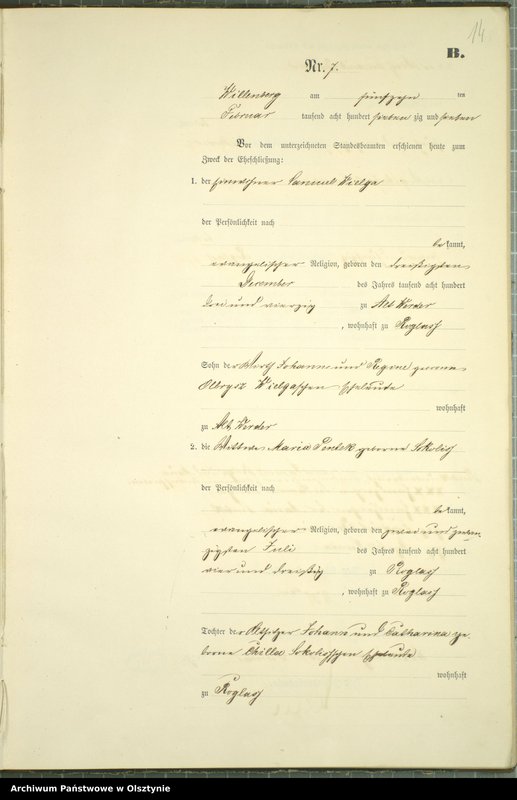 14
B.
Nr. 7.
Willenberg am fünfzehn ten
Februar tausend acht hundert sieben zig und sieben
Vor dem unterzeichneten Standesbeamten erschienen heute zum
Zweck der Eheschließung:
1. der Einwohner Samuel Wielga
der Persönlichkeit nach
be kannt,
evangelischer Religion, geboren den dreißigsten
Dezember des Jahres tausend acht hundert
drei und vierzig zu Alt Werder
, wohnhaft zu Roglass
Sohn der Wirth Johann und Regine geborne
Olbrysz Wielgaschen Eheleute
wohnhaft
zu Alt Werder
2. die Wittwe Maria Pentek geborne Sokolis
der Persönlichkeit nach
be kannt,
evangelischer Religion, geboren den zwei und zwan-
zigsten Juli des Jahres tausend acht hundert
vier und dreißig zu Roglass
, wohnhaft zu Roglass
Tochter der Altsitzer Johann und Catharina ge-
borne Chilla Eheleute
wohnhaft
zu Roglass
Archiwum Państwowe w Olsztynie